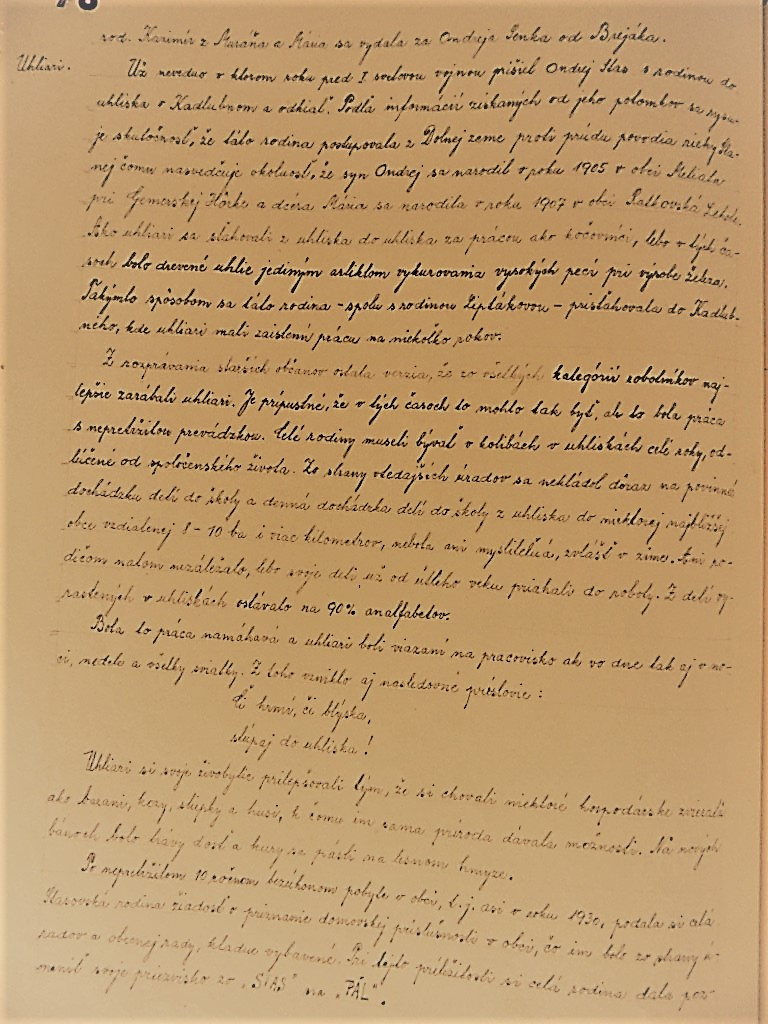 78
rod. Kazimír z Muráňa a Mária sa vydala za Ondreja Senka od Brejáka.
Uhliari.
Už nevedno v ktorom roku pred I. svetovou vojnou prišiel Ondrej Stas s rodinou do
uhliska v Kadlubnom a odkiaľ. Podľa informácií získaných od jeho potomkov sa rysu-
je skutočnosť, že táto rodina postupovala z Dolnej zeme proti prúdu povodia rieky Sla-
nej čomu nasvedčuje okolnosť, že syn Ondrej sa narodil v roku 1905 v obci Meliata
pri Gemerskej Hôrke a dcéra Mária sa narodila v roku 1907 v obci Ratkovská
Ako uhliari sa sťahovali z uhliska do uhliska za prácou ako kočovníci, lebo v tých ča-
soch bolo drevené uhlie jediným artiklom vykurovania vysokých pecí pri výrobe železa.
Takýmto spôsobom sa táto rodina - spolu s rodinou Liptákovou - prisťahovala do Kadlub-
ného, kde uhliari mali zaistenú prácu na niekoľko rokov.
Z rozprávania starších občanov ostala verzia, že zo všetkých kategórií robotníkov naj-
lepšie zarábali uhliari. Je prípustné, že v tých časoch to mohlo tak byť, ale to bola práca
s nepretržitou prevádzkou. Celé rodiny museli bývať v kolibách v uhliskách celé roky, od-
lúčené od spoločenského života. Zo strany vtedajších úradov sa nekládol dôraz na povinnú
dochádzku detí do školy a denná dochádzka detí do školy z uhliska do niektorej najbližšej
obce vzdialenej 8 - 10 ba i viac kilometrov, nebola ani mysliteľná, zvlášť v zime. Ani ro-
dičom natom nezáležalo, lebo svoje deti už od útleho veku priahali do roboty. Z detí vy-
rastených v uhliskách ostávalo na 90% analfabetov.
Bola to práca namáhavá a uhliari boli viazaní na pracovisko ak vo dne tak aj v no-
ci, nedele a všetky sviatky. Z toho vzniklo aj nasledovné príslovie :
Či hrmí, či blýska,
stupaj do uhliska !
Uhliari si svoje živobytie prilepšovali tým, že si chovali niektoré hospodárske zvieratá
ako barani, kozy, sliepky a husi, k čomu im sama príroda dávala možnosti. Na nových
báňoch bolo trávy dosť a kury sa pásli na lesnom hmyze.
Po nepretržitom 10 ročnom bezúhonom pobyte v obci, t. j. asi v roku 1930, podala si celá
Stasovská rodina žiadosť o priznanie domovskej príslušnosti v obci, čo im bolo zo strany ú-
radov a obecnej rady, kladne vybavené. Pri tejto príležitosti si celá rodina dala poz-
meniť svoje priezvisko zo „STAS" na „PÁL".